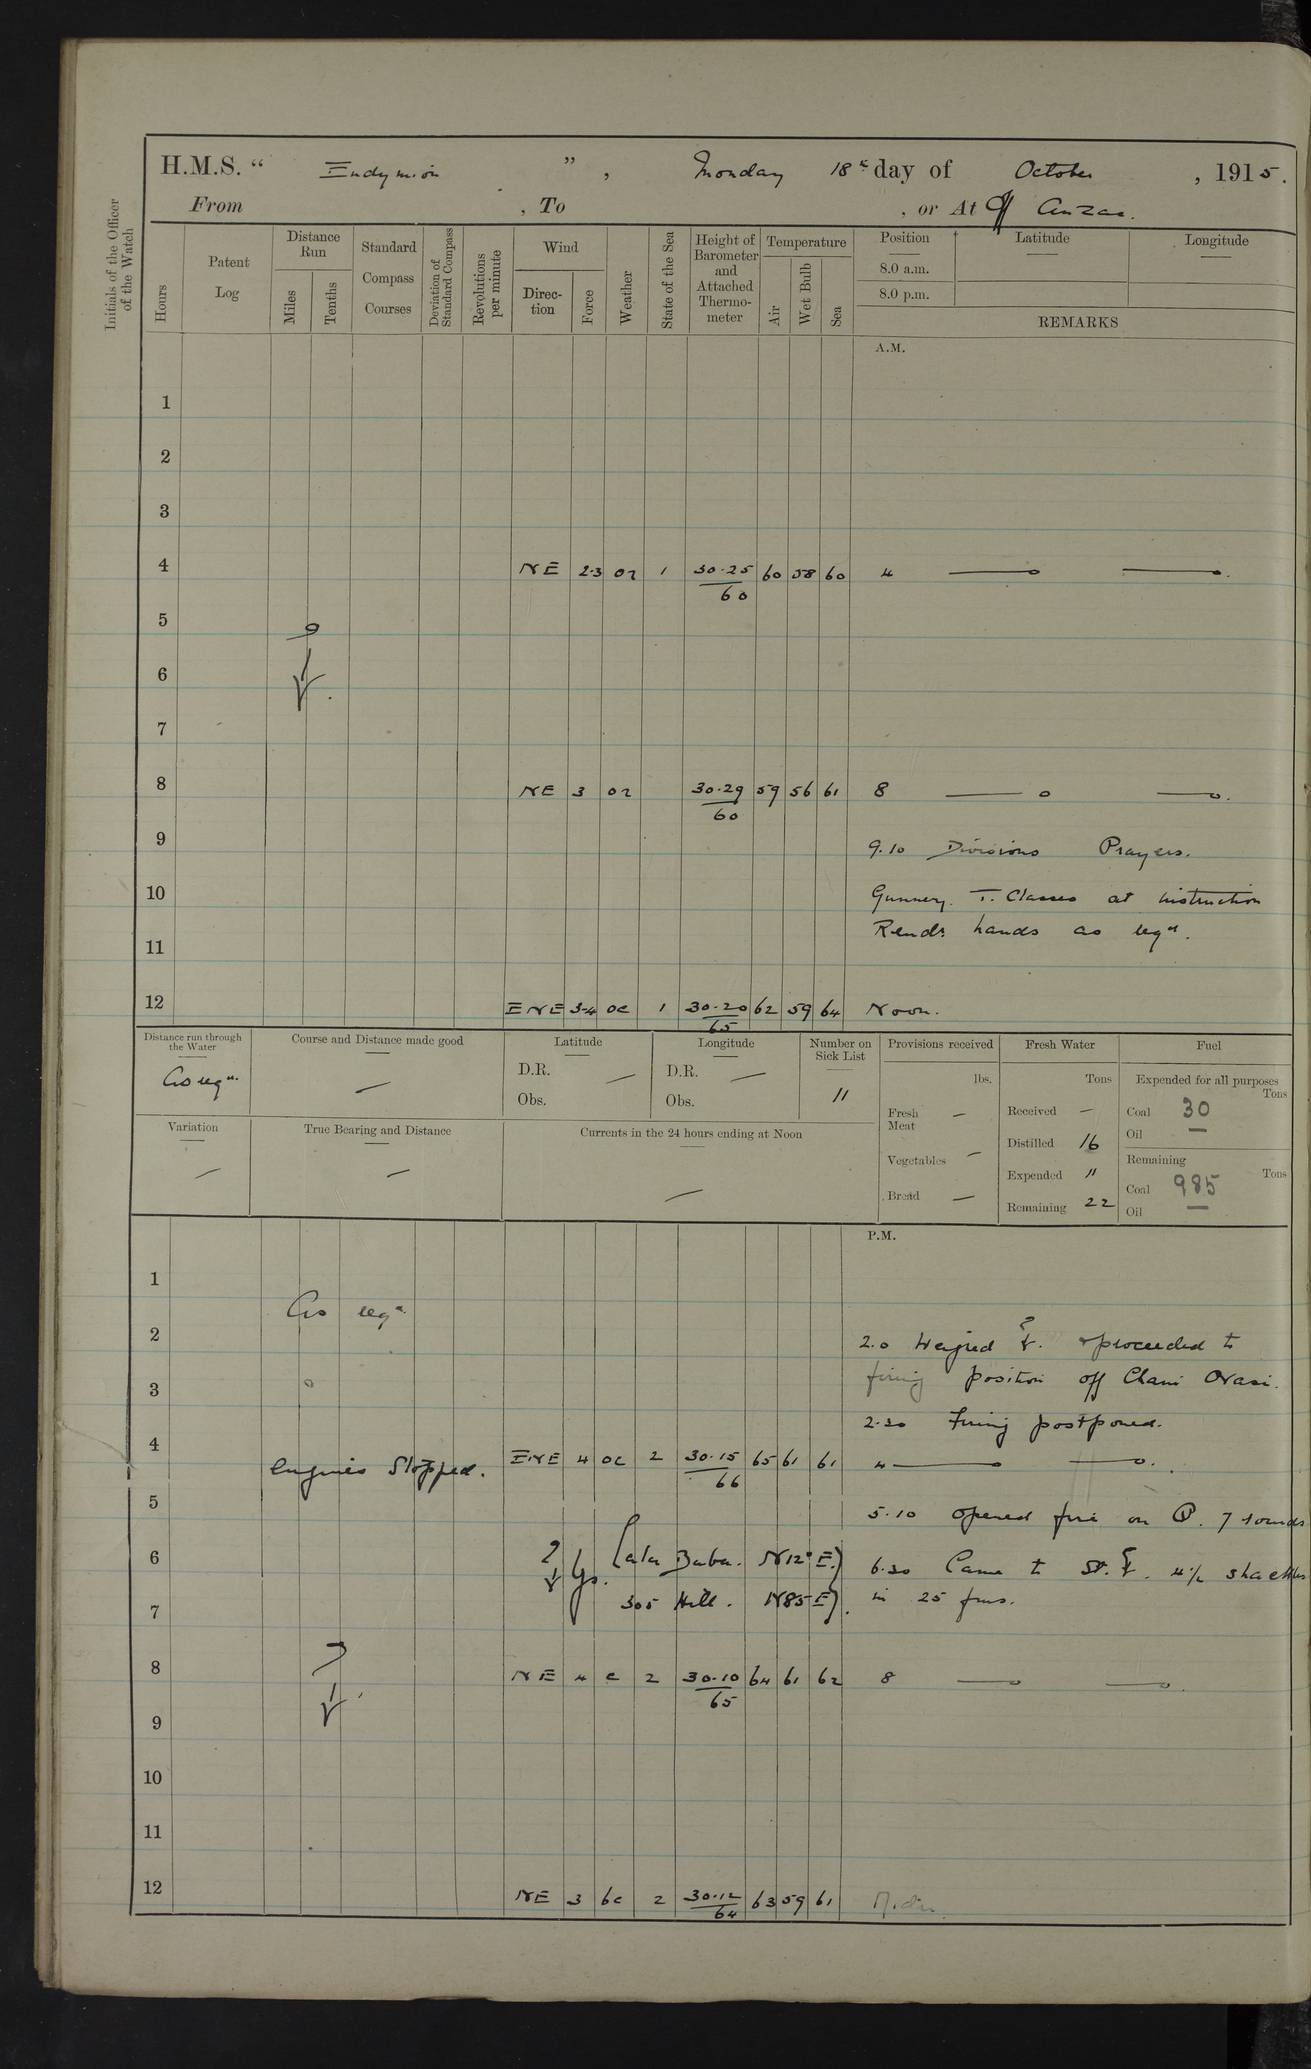 H.M.S. “ Endymion ” , Monday 18th day of October , 1915.
From , To , or At Off Anzac.
Initials of the Officer of the Watch
Hours
Patent Log
Distance Run
Miles
Tenths
Standard Compass Courses
Deviation of Standard Compass
Revolutions per minute
Wind
Direc-tion
Force
Weather
State of the Sea
Height of Barometer and Attached Thermo-meter
Temperature
Air
Wet Bulb
Sea
Position
8.0 a.m.
8.0 p.m.
Latitude
Longitude
REMARKS
A.M.
1
2
3
4 NE 2.3 or 1 30.25 60 58 60 4
60
5
6
7
8 NE 3 or 30.29 59 56 61 8
60
9 9.10 Divisions Prayers.
10 Gunnery. T. Classes at instruction
11 Rendr hands as reqd.
12 ENE 3-4 oc 1 30.20 62 59 64 Noon.
65
Distance run through the Water
As reqd.
Course and Distance made good
Latitude
D.R. —
Obs.
Longitude
D.R. —
Obs.
Number on Sick List
11
Provisions received
lbs.
Fresh Meat —
Vegetables —
Bread —
Fresh Water
Tons
Received —
Distilled 16
Expended 11
Remaining 22
Fuel
Expended for all purposes
Tons
Coal 30
Oil —
Remaining
Tons
Coal 985
Oil —
Variation
True Bearing and Distance
Currents in the 24 hours ending at Noon
P.M.
1
As reqd.
2 2.0 Weighed & proceeded to
3 firing position off Chani Ovasi.
2.30 Firing postponed.
4 ENE 4 oc 2 30.15 65 61 61 4
Engines Stopped. 66
5 5.10 opened fire on 7 rounds
6 Lala Baba. N12°E. 6.30 Came to St. 4½ shackles
7 305 Hill. N85E in 25 fms.
8 NE 4 c 2 30.10 64 61 62 8
65
9
10
11
12 NE 3 bc 2 30.12 63 59 61 Midn.
64